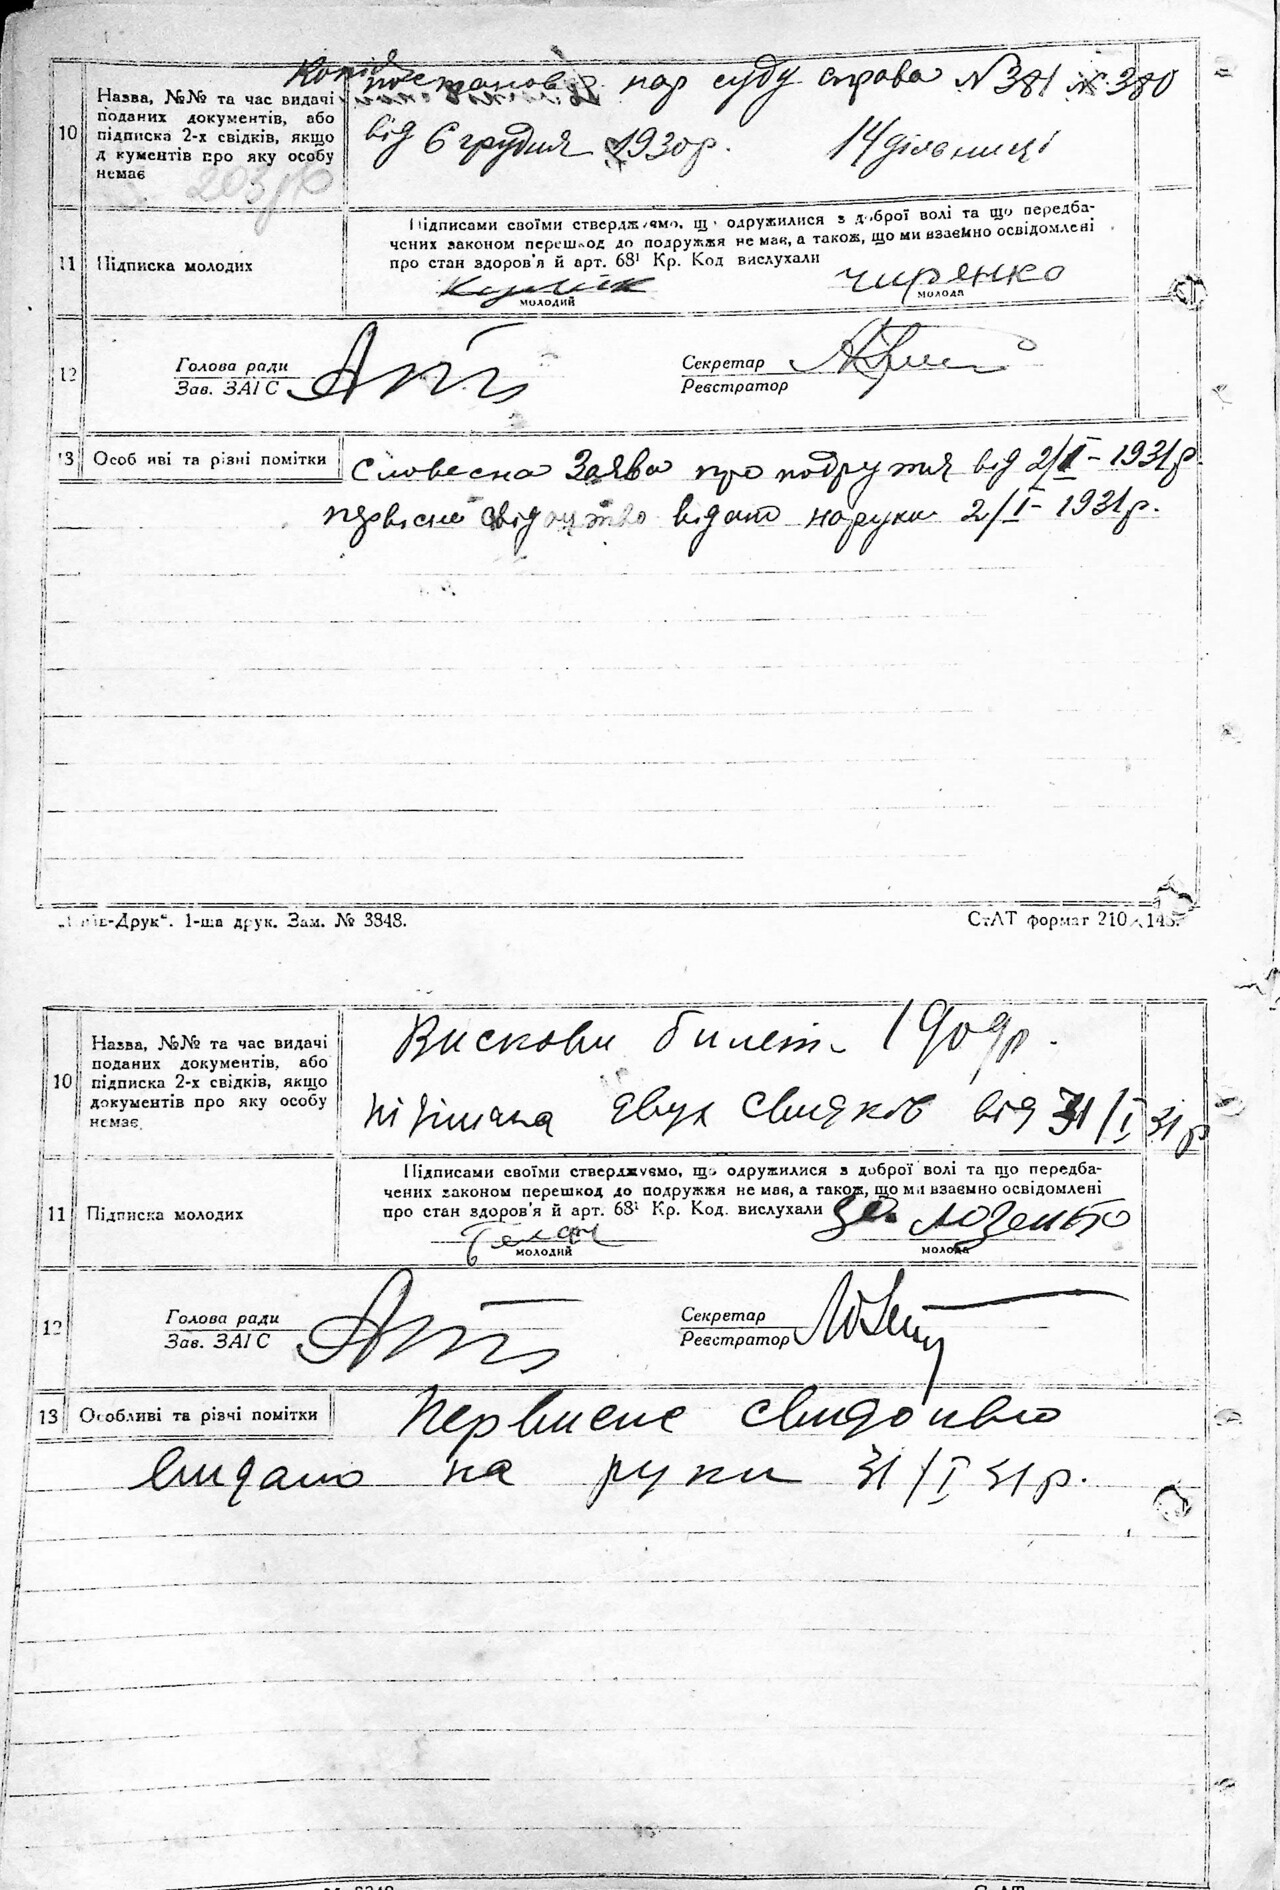 Копія постанови нар суду справа № 381 № 380
від 6 грудня 1930р. 14 дільниці
10
Назва, №№ та час видачі
поданих документів, або
підписка 2-х свідків, якщо
д кументів про яку особу
немає
203
11
Підписка молодих
Підписами своїми стверджуємо, що одружилися з доброї волі та що передба-
чених законом перешкод до подружжя не має, а також, що ми взаємно освідомлені
про стан здоров'я й арт. 68¹ Кр. Код вислухали
молодий
Чирянко
молода
12
Голова ради
Зав. ЗАГС
Секретар
Реєстратор
13
Особ иві та різні помітки
Словесна Заява про подружжя від 2/I-1931р
первісне свідоцтво видано на руки 2/I-1931р.
-Друк“. 1-ша друк. Зам. № 3848.
СтАТ формат 210×148.
10
Назва, №№ та час видачі
поданих документів, або
підписка 2-х свідків, якщо
документів про яку особу
немає.
Висковы билет 1909р.
підписка двух свидків від 31/I 31р
11
Підписка молодих
Підписами своїми стверджуємо, що одружилися з доброї волі та що передба-
чених законом перешкод до подружжя не має, а також, що ми взаємно освідомлені
про стан здоров'я й арт. 68¹ Кр. Код. вислухали
молодий
Лозенко
молода
12
Голова ради
Зав. ЗАГС
Секретар
Реєстратор
13
Особливі та різні помітки
Первисне свидоцтво
видано на руки 31/I 31р.